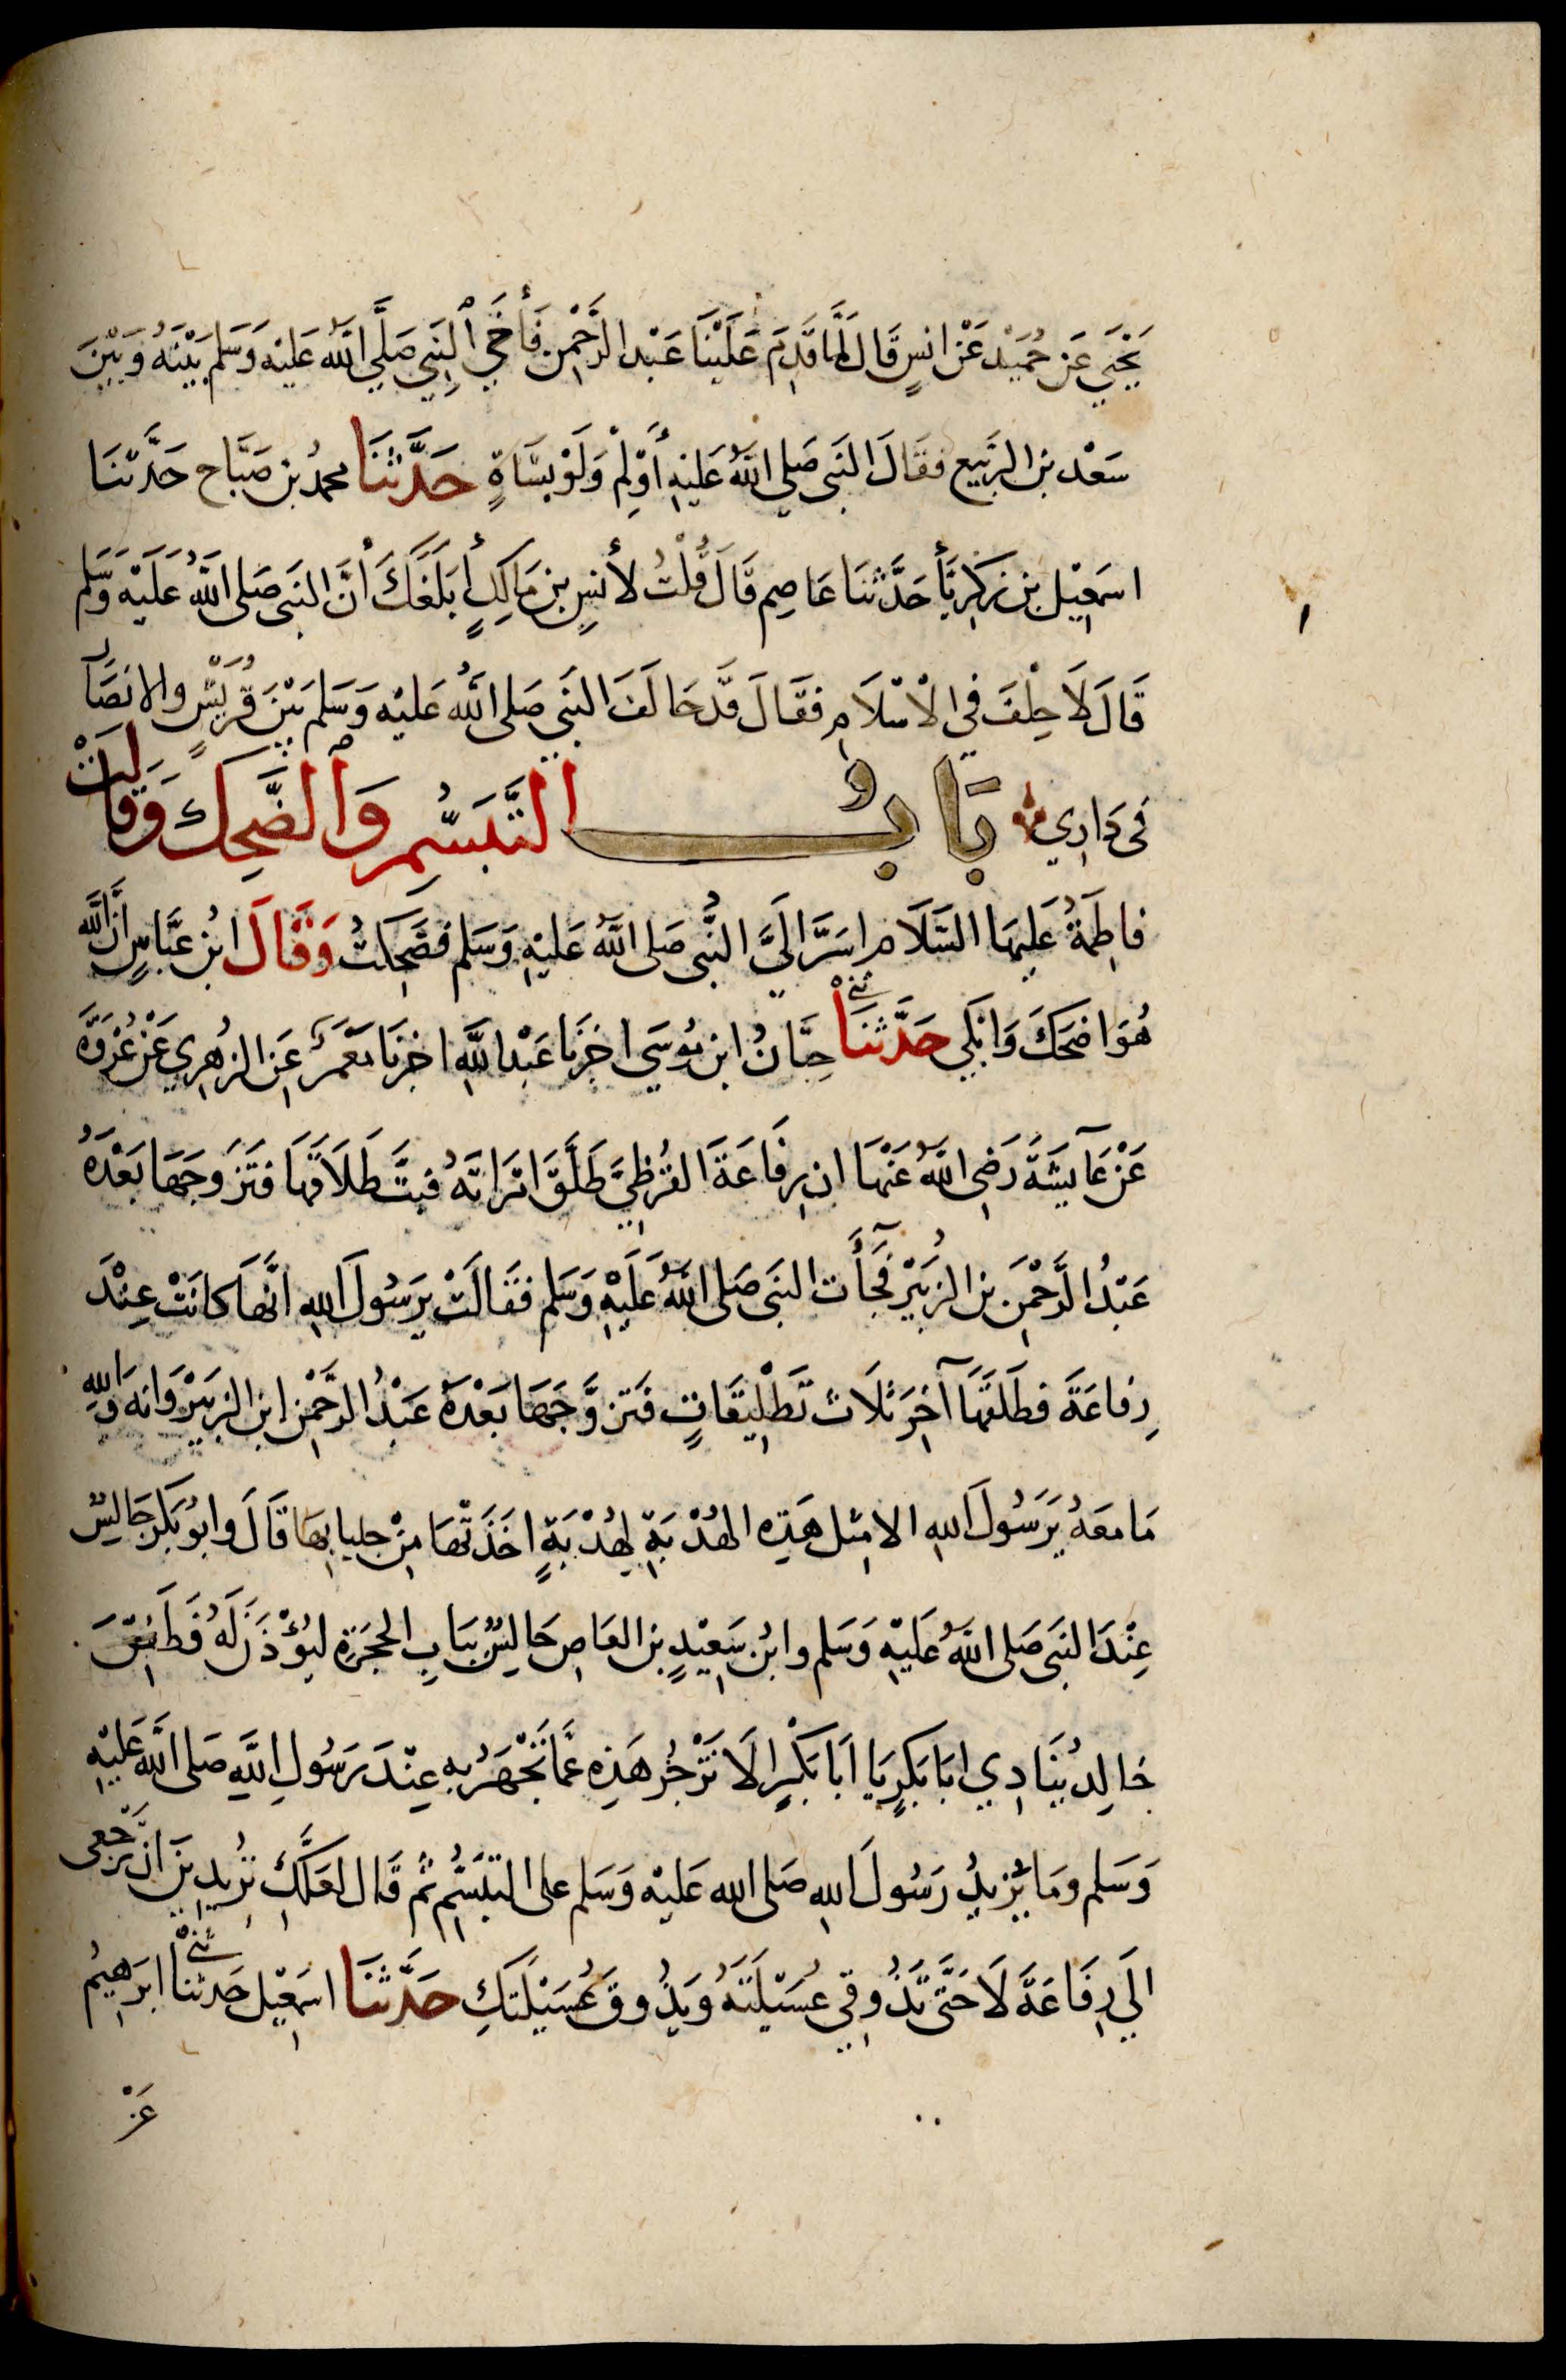 يَحْيَي عَن حُمَيْد عَنْ انسٍ قَالَ لَمَّا قَدِمَ عَلَيْنَا عَبْد الرَّحْمٰن فَأٰخَي النَبِي صَلَّي اللَّهُ عَليْه وَسَلم بَيْنَهُ وَبَيْنَ
سَعْد بن الرَّبيع فقَالَ النَبى صَلي اللَّهُ عَليْهِ أَوْلِمْ وَلَوْ بشَاةٍ حَدَّثَنَا محمدُ بن صَبَّاح حَدَّثنَا
اسمَعِيْل بن زكَرِيَّأ حَدَّثنَا عَاصِم قَالَ قُلْتُ لأنسٍ بن مَالِكٍ أبَلَغَكَ أنَّ النبَى صَلى اللَّهُ عَلَيْه وَسَلم
قَالَ لَا حِلْفَ فِي الْاسْلَامِ فقَالَ قَد حَالَفَ النبَي صَلى اللَّهُ عَليْه وَسَلم بَيْنَ قُرَيْشٍ والانصَار
فى دَاري بَابُ التَّبَسُّمِ وَالضَّحِكِ وَقَالَتْ
فاطِمَةُ عَليهَا السَّلَام اسَرَّ الَيَّ النَّبُى صَلى اللَّهُ عَليْهِ وَسَلم فضَحِكتُ وَقَالَ ابنُ عَبَّاسٍ انَّ اللَّه
هُوَ اضحَكَ وَابْكَي حَدَّثنَا ثنى حِبَّانُ ابن مُوسَي اخبَرنَا عَبْد اللَّهِ اخبرَنَا مَعْمَرٌ عَنِ الزهْرِي عَنْ عُرْوَةَ
عَنْ عَآيشَةَ رَضى اللَّهُ عَنْهَا ان رِفَاعَةَ القُرظِيَّ طَلَّقَ امْرَاتَهُ فبَتَّ طَلَاقَهَا فتَزَوجَهَا بَعْدَهُ
عَبْدُ الرَّحْمٰنِ بن الزبَيْر فَجَأَٓت النبَى صَلى اللَّهُ عَلَيْهِ وَسَلم فقَالَتْ يٰرَسُولَ اللهِ انَّهَا كانَتْ عِنْدَ
رِفاعَةَ فطَلقَهَا آخِرَ ثلَاث تَطْلِيقَاتٍ فَتزوَّجَهَا بَعْدَهُ عَبْدُ الرحْمٰنِ ابن الزبَيْر وَانه وَاللهِ
مَا معَهُ يٰرَسُولَ اللهِ الا مِثل هَذِه الهُدْبَةِ لِهُدْبَةٍ اخَذَتْهَا مِنْ جلبابِهَا قَالَ وابُو بَكر جَالِسٌ
عِنْدَ النبَى صَلى اللَّهُ عَلَيْه وَسَلم وابنُ سَعِيْدٍ بن العَاصِ جَالِسٌ ببَابِ الحجرَةِ ليُؤذَنَ لَهُ فَطَفِقَ
خالِدٌ يُنَادِي ابَا بَكرٍ يَا ابَا بَكْرٍ الَا تَزْجُر هَذِهِ عَمَّا تَجْهَرُ بِهِ عِنْدَ رَسُولِ اللَّهِ صَلى اللَّه عَليْهِ
وَسَلم ومَا يَزيدُ رَسُولَ اللهِ صَلى الله عَليْه وَسَلم على التبَسُّمِ ثُم قَال لعَلَّكِ تُرِيدِينَ ان تَرْجعى
الَي رِفَاعَةَ لَا حَتَّى تَذُوقِي عُسَيْلتَهُ وَيَذُوقَ عُسَيْلَتَكِ حَدَّثَنَا اسمَعِيْل حَدثنَا ثنى ابرَهِيْمُ
عَنْ